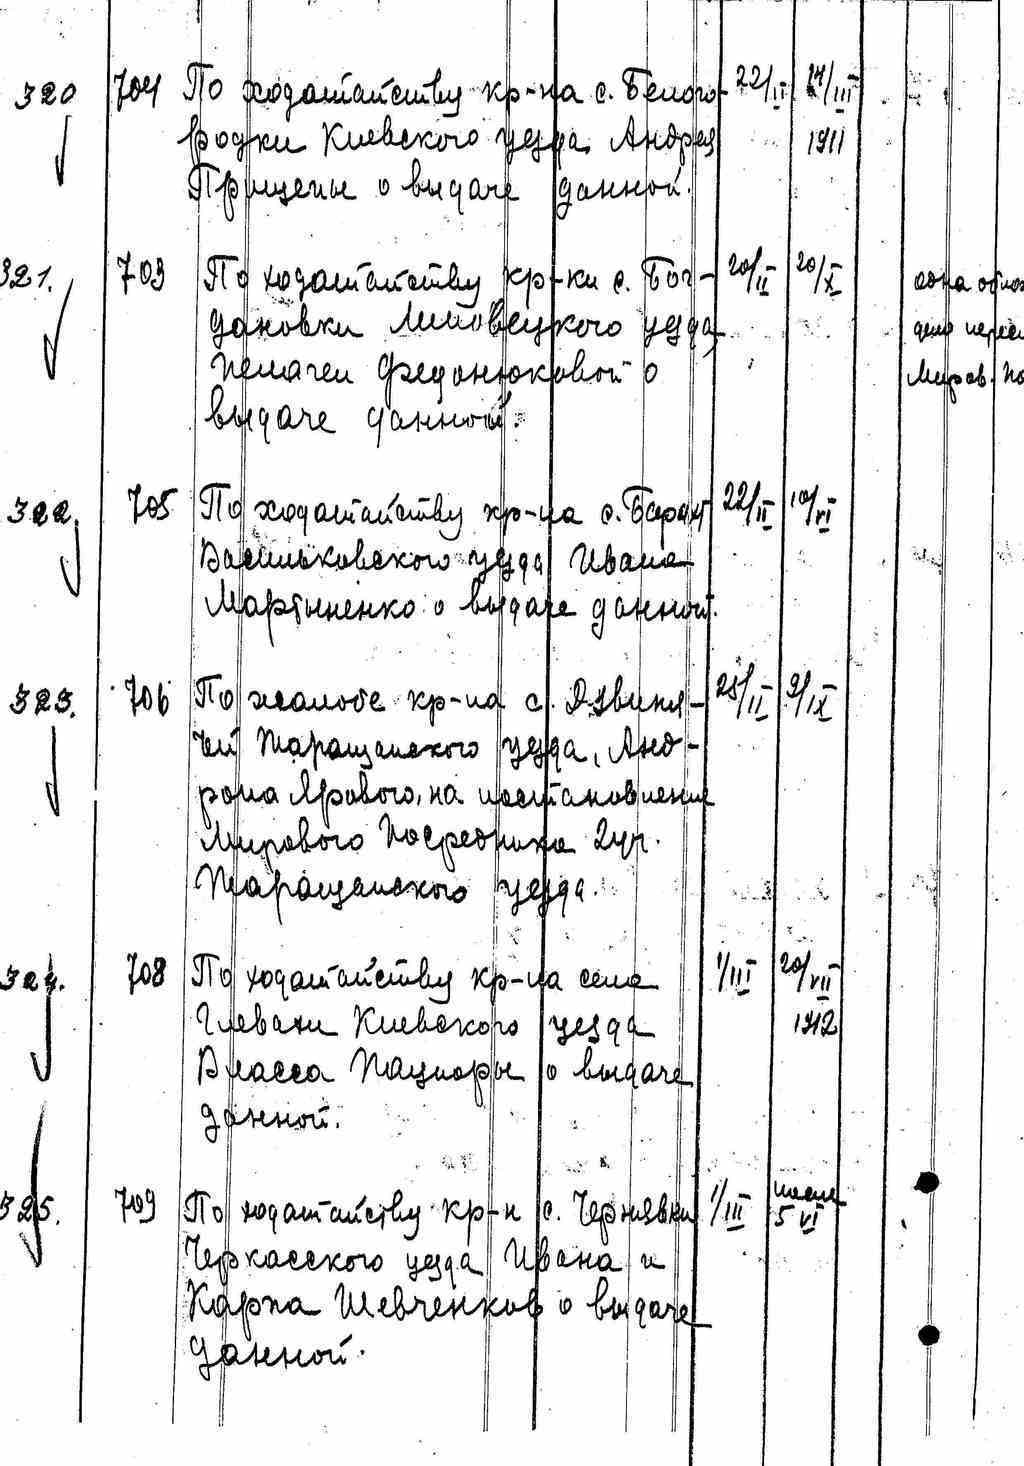 320 704 По ходатайству кр-на с. Белого- 22/II 17/III
родки Киевского уезда, Андрея 1911
Прищепы о выдаче данной.
321. 703 По ходатайству кр-ки с. Бог- 20/II 20/X
дановки Липовецкого уезда,
Пелагеи Федонюковой о Миров. По
выдаче данной.
322. 705 По ходатайству кр-на с. Барахт 22/II 10/VI
Васильковского уезда Ивана
Мартыненко о выдаче данной.
323. 706 По жалобе кр-на с. Дзвиня- 25/II 9/IX
чей Таращанского уезда, Анд-
рона Ярового, на постановление
Мирового Посредника 2 уч.
Таращанского уезда.
324. 708 По ходатайству кр-на села 1/III 20/VII
Глевахи Киевского уезда 1912
Власса Пациоры о выдаче
данной.
325. 709 По ходатайству кр-н с. Чернявки 1/III после 5 VI
Черкасского уезда Ивана и
Карпа Шевченков о выдаче
данной.